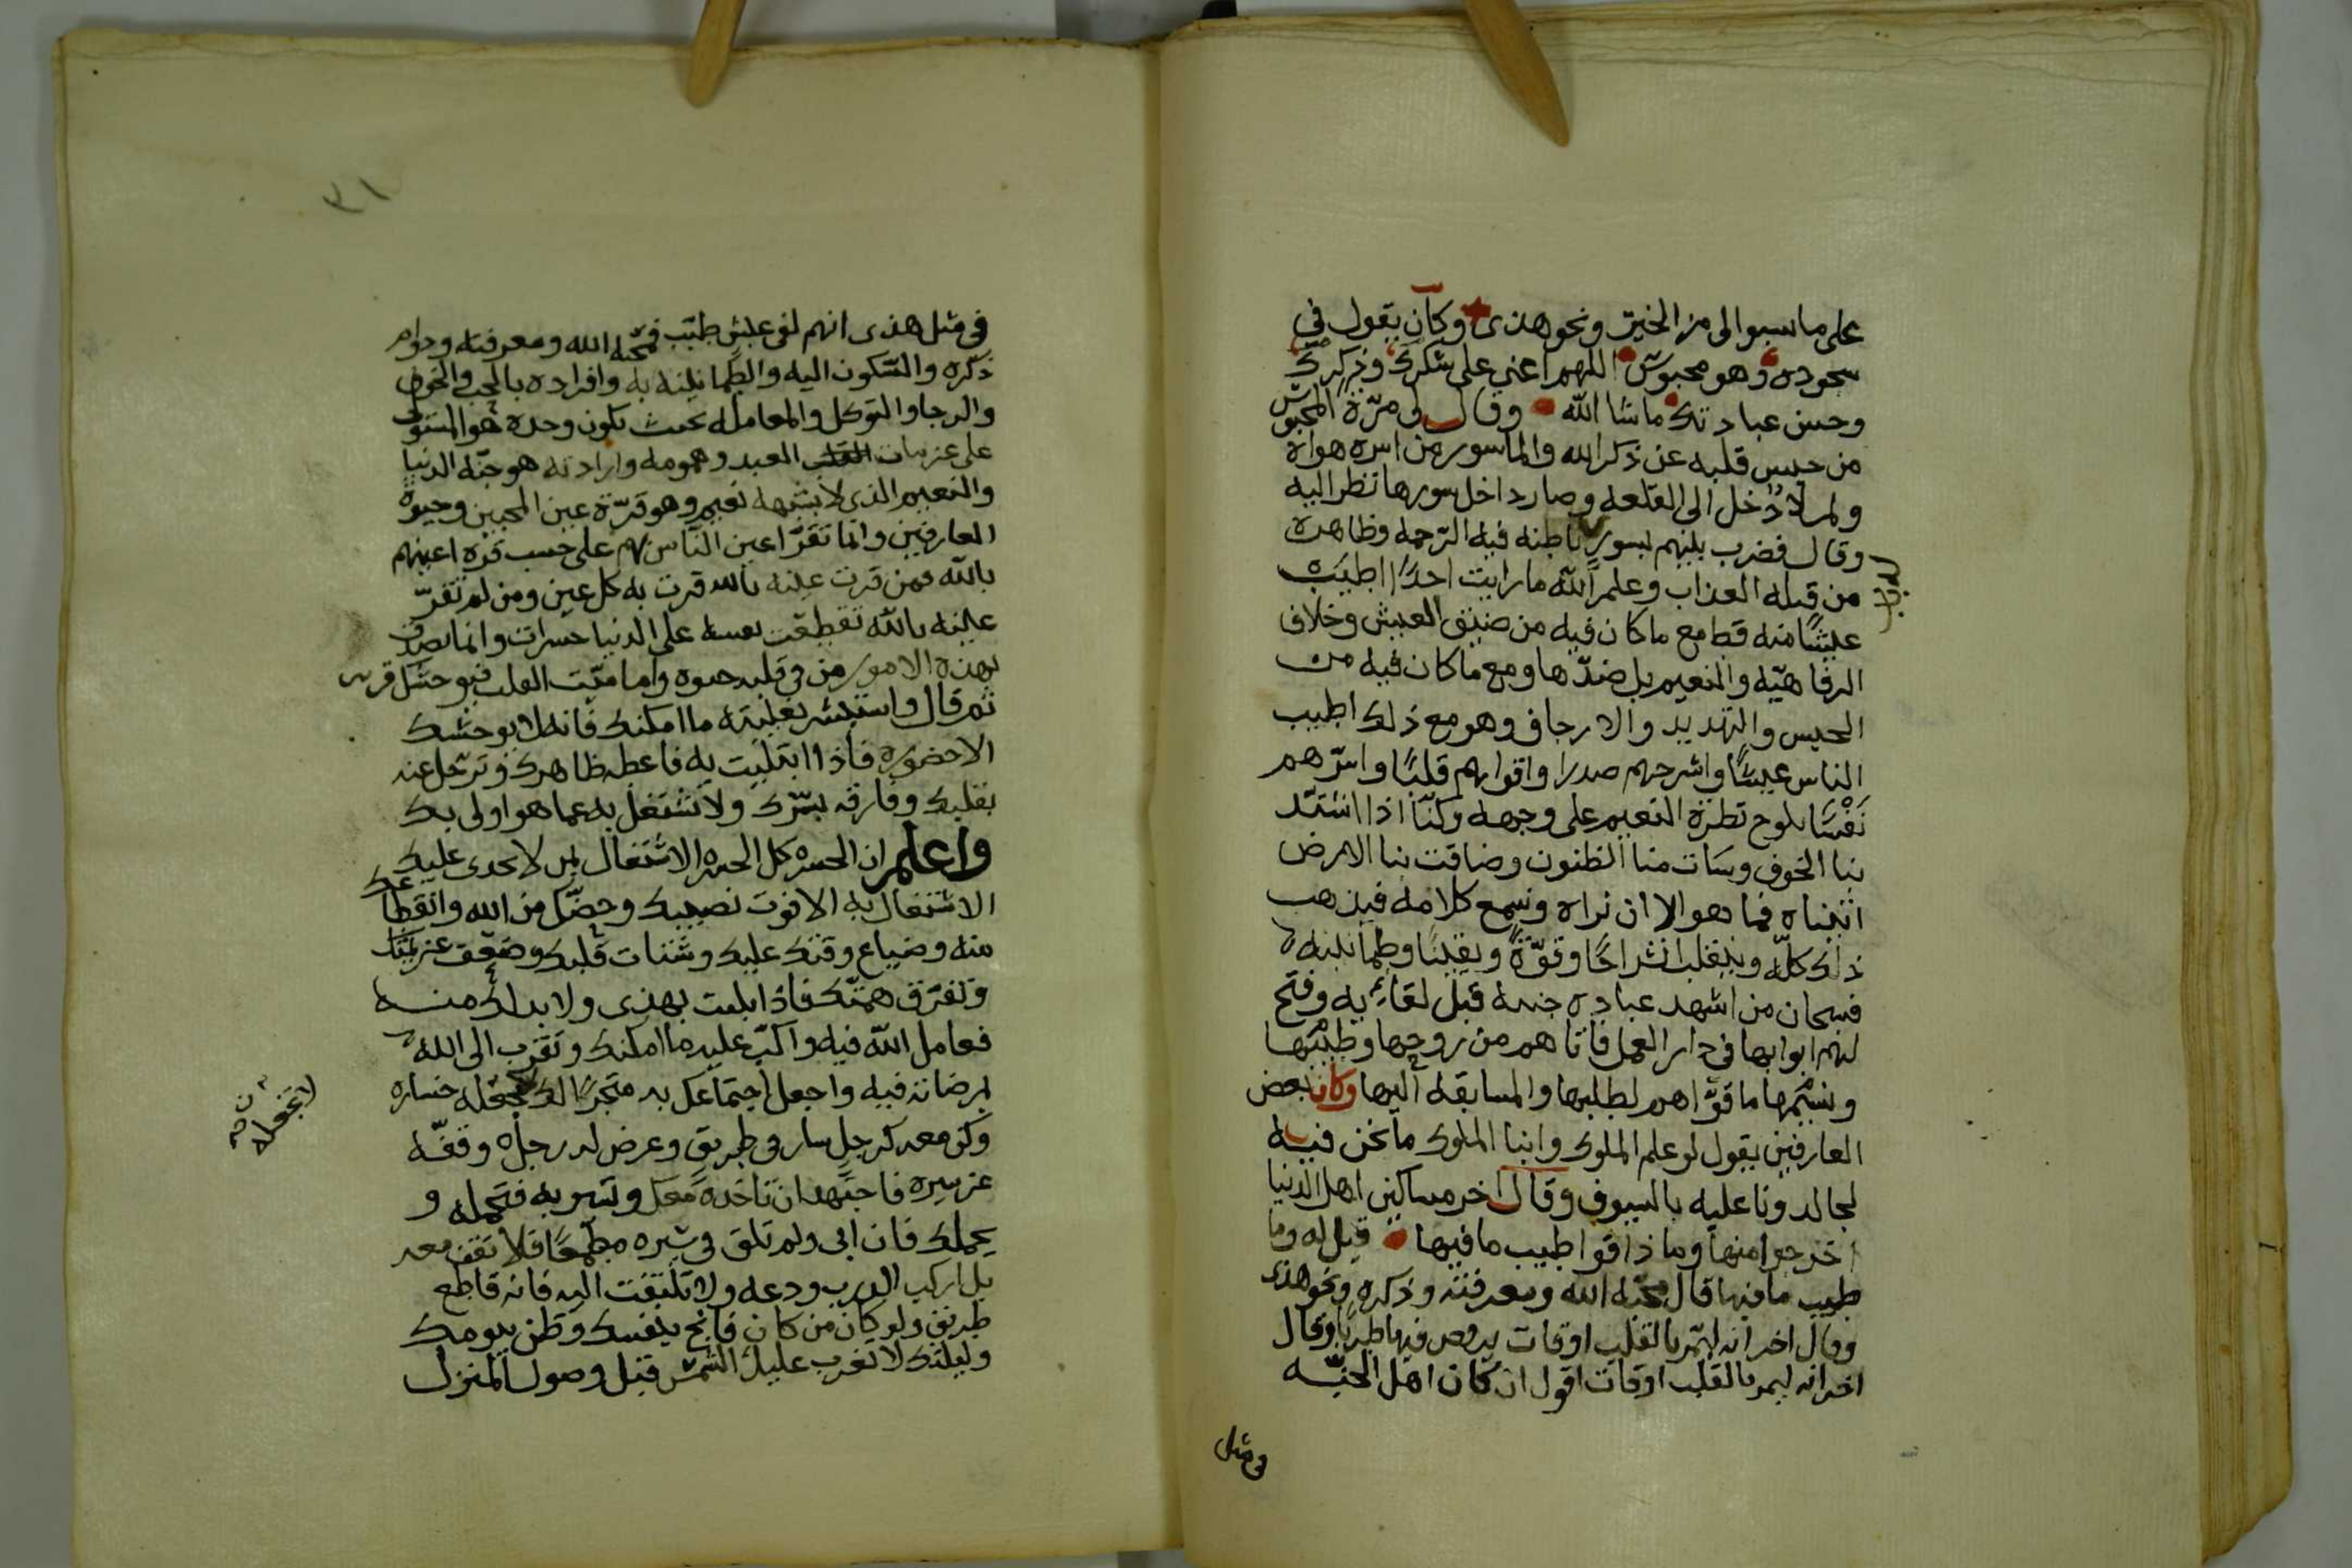 على ما سببوا لى من الخير ونحو هذى وكان يقول في
سجوده وهو محبوس اللهم اعني على شكرك وذكرك
وحسن عبادتك ماشا الله وقال لى مرّة المحبوس
من حبس قلبه عن ذكر الله والماسور من اسره هواه
ولما دخل الى القلعه وصار داخل سورها نظر اليه
وقال فضرب بينهم بسور باطنه فيه الرحمه وظاهره
من قبله العذاب وعلم الله ما رايت احدًا اطيب
عيشًا منه قط مع ما كان فيه من ضيق العيش وخلاف
الرفاهيّه والنعيم بل ضدّها ومع ما كان فيه من
الحبس والتهديد والارجاف وهو مع ذلك اطيب
الناس عيشًا واشرحهم صدرا واقواهم قلبًا واسرّهم
نَفْسًا يلوح نظرة النعيم على وجهه وكنّا اذا اشتدّ
بنا الخوف وسات منا الظنون وضاقت بنا الارض
اتيناه فما هو الا ان نراه ونسمع كلامه فيذهب
ذلك كلّه وينقلب انشراحًا وقوّةً ويقينًا وطمانينه
فسبحان من اشهد عباده جنته قبل لقائه وفتح
لهم ابوابها في دار العمل فاتاهم من روحها وطيبها
ونسيمها ما قوّاهم لطلبها والمسابقه اليها وكان بعض
العارفين يقول لو علم الملوك وابنا الملوك ما نحن فيه
لجالدونا عليه بالسيوف وقال اخر مساكين اهل الدنيا
خرجوا منها وما ذاقوا طيب ما فيها قيل له وما
طيب ما فيها قال محبّة الله ومعرفته وذكره ونحو هذى
وقال اخر انه ليمّر بالقلب اوقات يرقص فيها طربًا وقال
اخر انه ليمر بالقلب اوقات اقول ان كان اهل الجنّه
في مثل
٣١
في مثل هذى انهم لفى عيش طيّب فمحبّة الله ومعرفته ودوام
ذكره والسّكون اليه والطمانينه به وافراده بالحب والخوف
والرجا والتوكل والمعامله بحيث يكون وحده هو المستولى
على عزمات العبد وهمومه وارادته هو جنّه الدنيا
والنعيم الذى لا يشبهه نعيم وهو قرّة عين المحبين وحيوة
العارفين وانما تَقَرّ اعين النّاس بهم على حسب قرّه اعينهم
بالله فمن قرت عينه بالله قرت به كل عين ومن لم تقرّ
عينه بالله تقطعت نفسه على الدنيا حسرات وانما يصدق
بهذه الامور من في قلبه حيوه واما ميّت القلب فيوحشك قربه
ثم قال واستبشر بغيبته ما امكنك فانه لا يوحشك
الا حضوره فاذا ابتليت به فاعطه ظاهرك وترحّل عنه
بقلبك وفارقه بسّرك ولا تشتغل به عما هو اولى بك
واعلم ان الحسره كل الحسره الاشتغال بمن لا يجدى عليك
الاشتغال به الا فوت نصيبك وحضّك من الله وانقطاعك
منه وضياع وقتك عليك وشتات قلبك وضعف عزيمتك
وتفرّق همتّك فاذا بليت بهذى ولا بدلك منه
فعامل الله فيه واكتب عليه ما امكنك وتقرب الى الله
بمرضاته فيه واجعل اجتماعك به متجرًا لك لا تجعله خساره
وكن معه كرجل سار في طريق وعرض له رجل وقفّه
عن سيره فاجتهد ان تاخذه معك وتسير به فتحمله و
يحملك فان ابى ولم تلق في سيره مطمعًا فلا تقف معه
بل اركب الدرب ودعه ولا تلتفت اليه فانه قاطع
طريق ولو كان من كان فانج بنفسك وظن بيومك
وليلتك لا تغرب عليك الشمس قبل وصول المنزل
لا تجعله